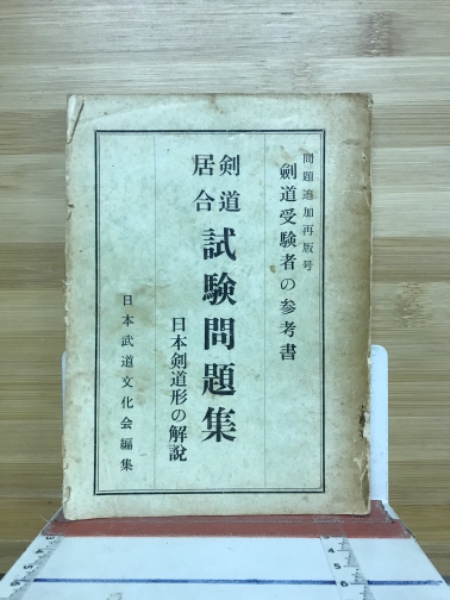 問題追加再版号
劍道受験者の参考書
剣道
居合
試験問題集
日本剣道形の解說
日本武道文化会編集